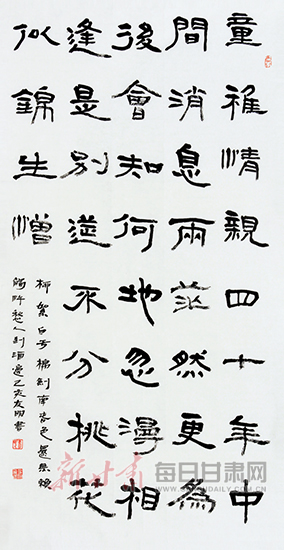 童稚情親四十年中
間消息兩茫然更為
後會知何地忽漫相
逢是別筵不分桃花
似錦生憎
柳絮白于棉劍南春色還無賴
觸忤愁人到酒邊乙亥友明書
新甘肃
每日甘肃网